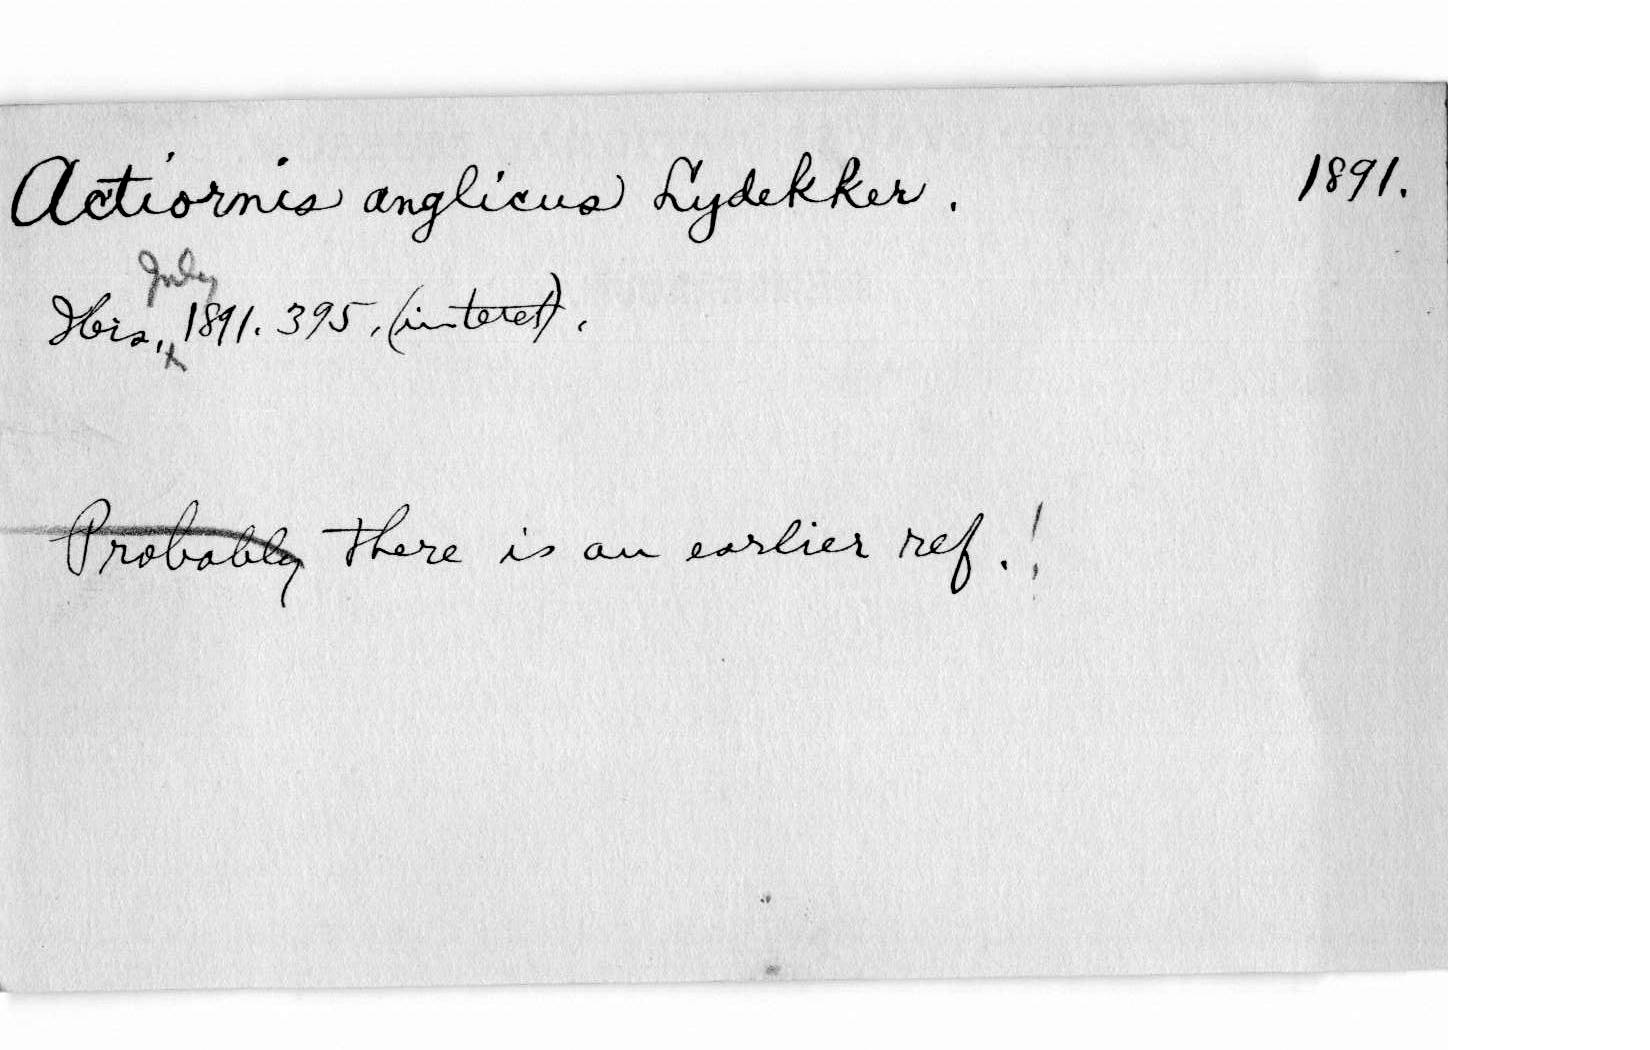 Actiornis anglicus Lydekker. 1891.
July
Ibis, 1891. 395, (in text).
Probably there is an earlier ref.!